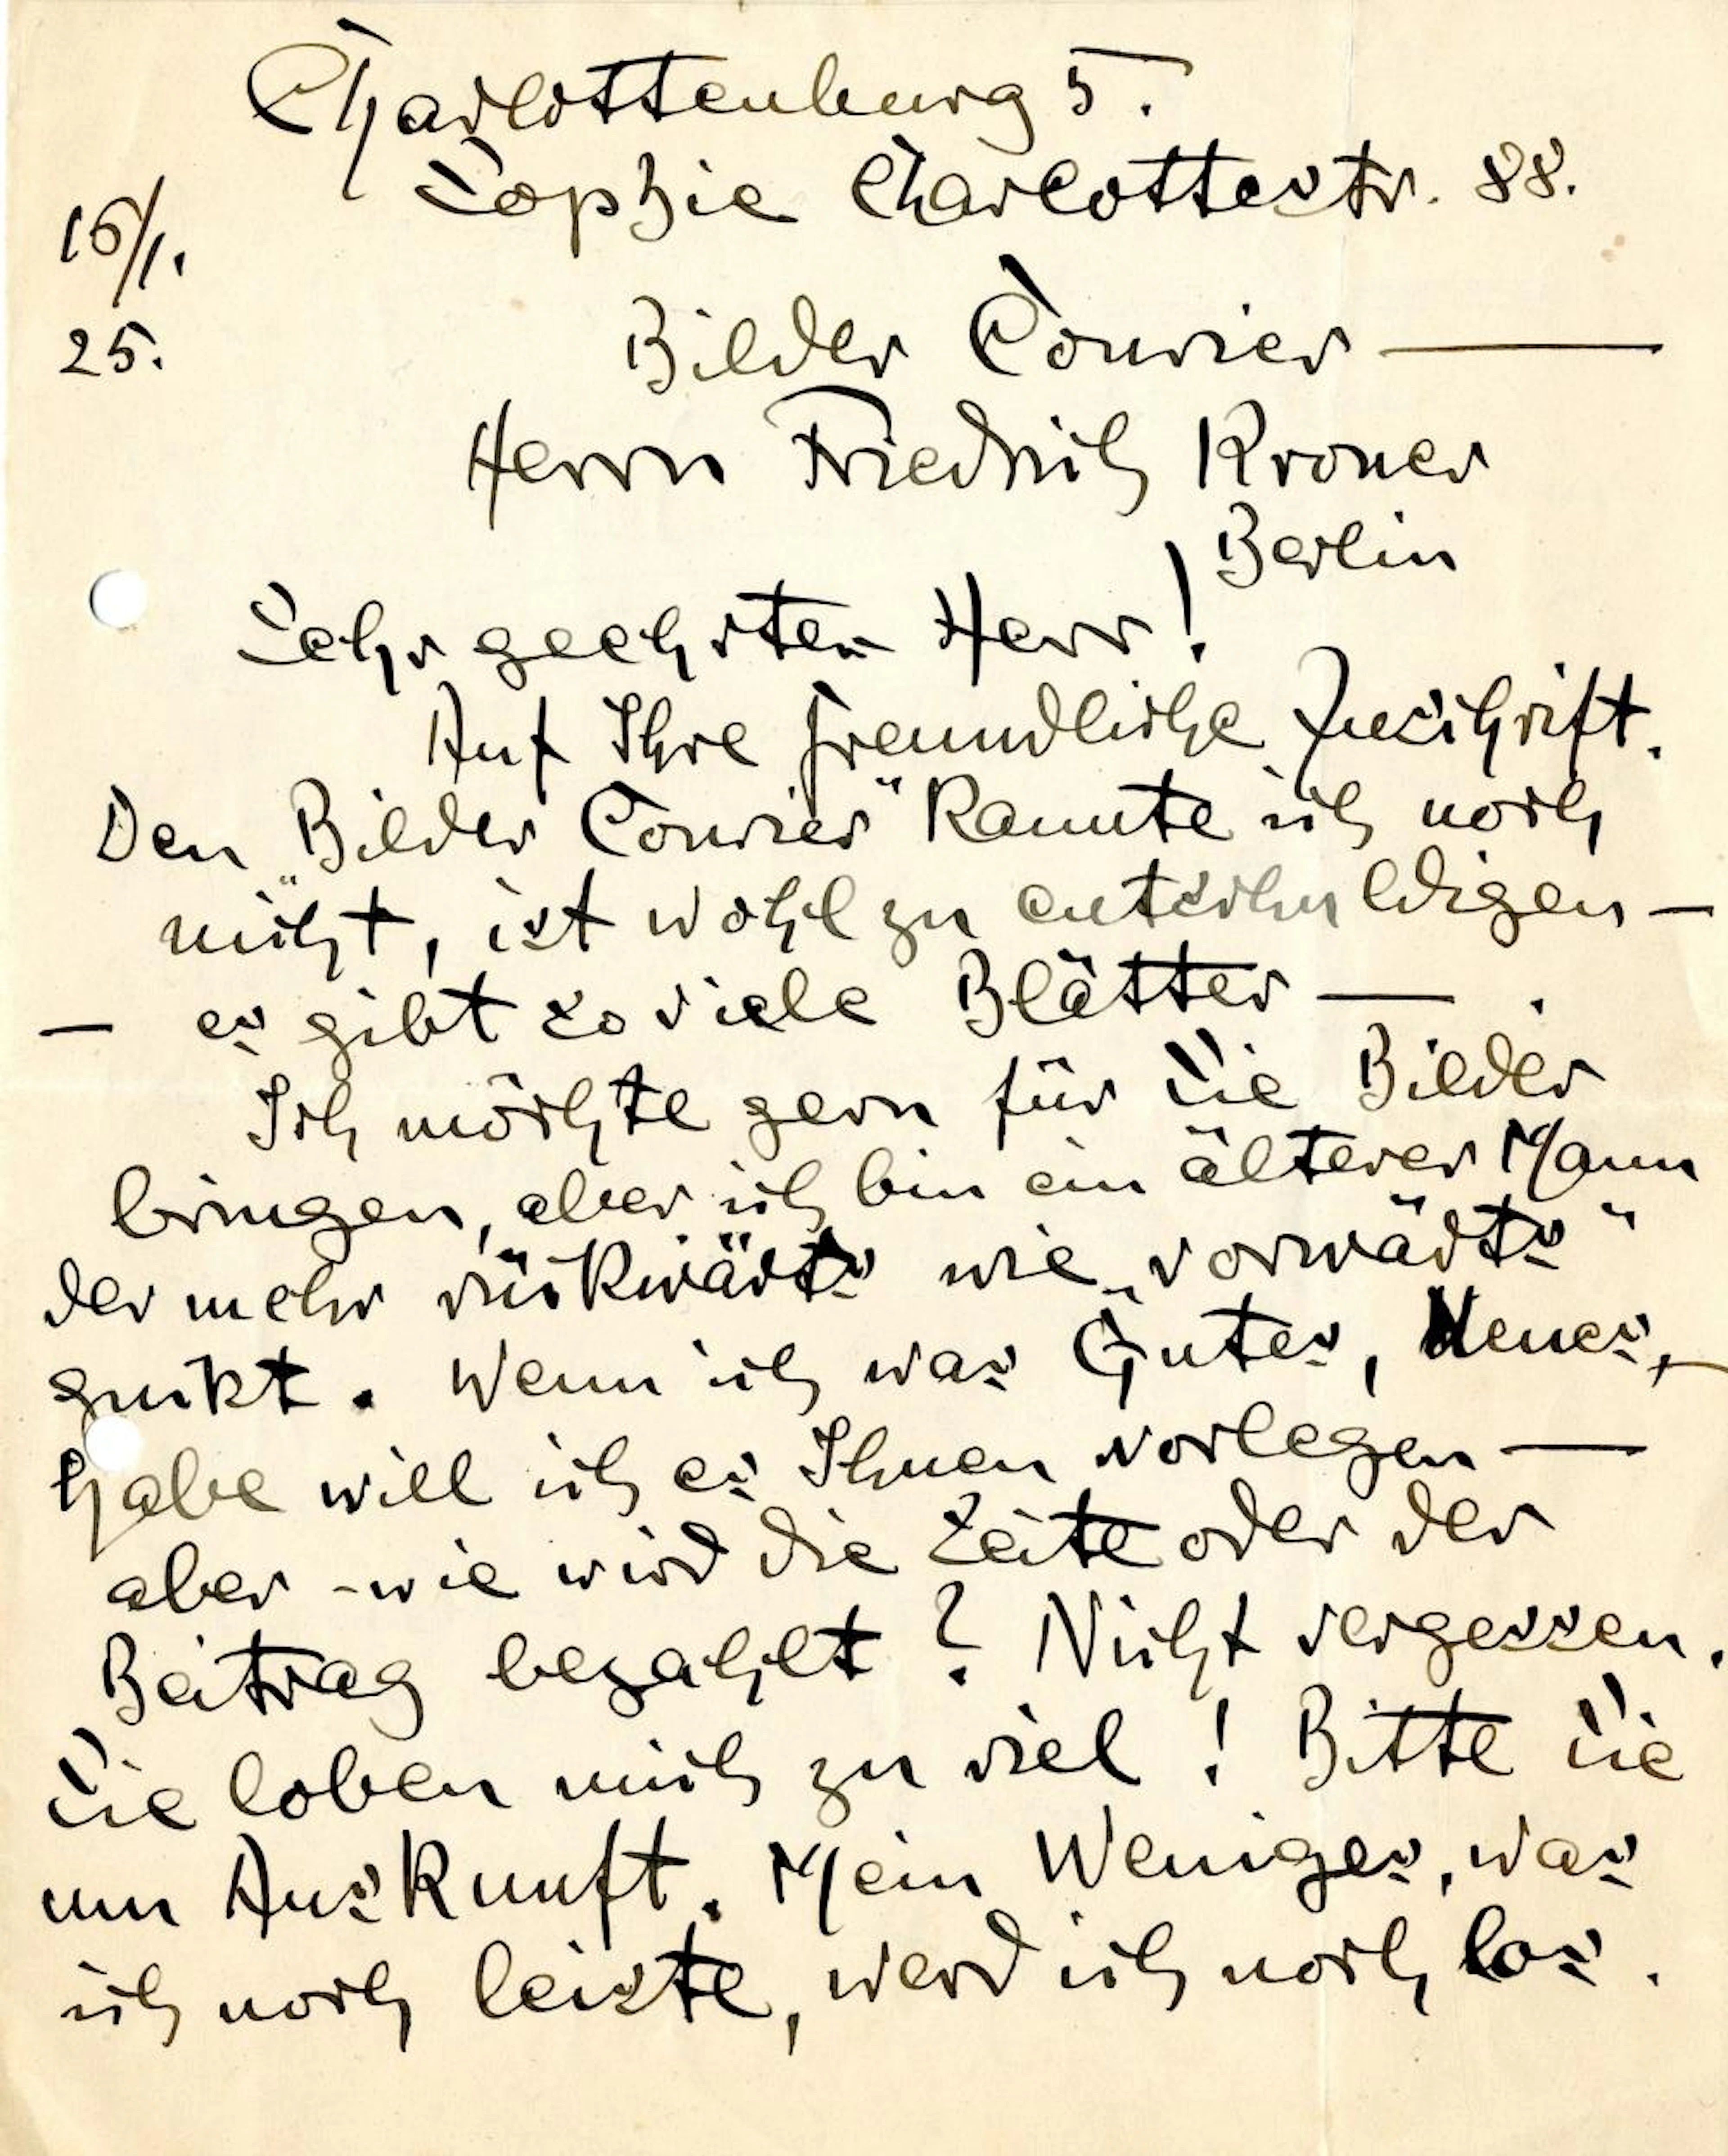 Charlottenburg 5.
Sophie Charlottestr. 88.
16/1.
25.
Bilder Courier —
Herrn Friedrich Kroner
Berlin
Sehr geehrter Herr!
Auf Ihre freundliche Zuschrift.
Den „Bilder Courier“ kannte ich noch
nicht, ist wohl zu entschuldigen —
— es gibt so viele Blätter — .
Ich möchte gern für Sie Bilder
bringen, aber ich bin ein älterer Mann
der mehr rückwärts wie „vorwärts“
guckt. Wenn ich was Gutes, Neues, —
habe will ich es Ihnen vorlegen —
aber - wie wird die Seite oder der
Beitrag bezahlt? Nicht vergessen.
Sie loben mich zu viel! Bitte Sie
um Auskunft. Mein Weniges, was
ich noch leiste, werd ich noch los.